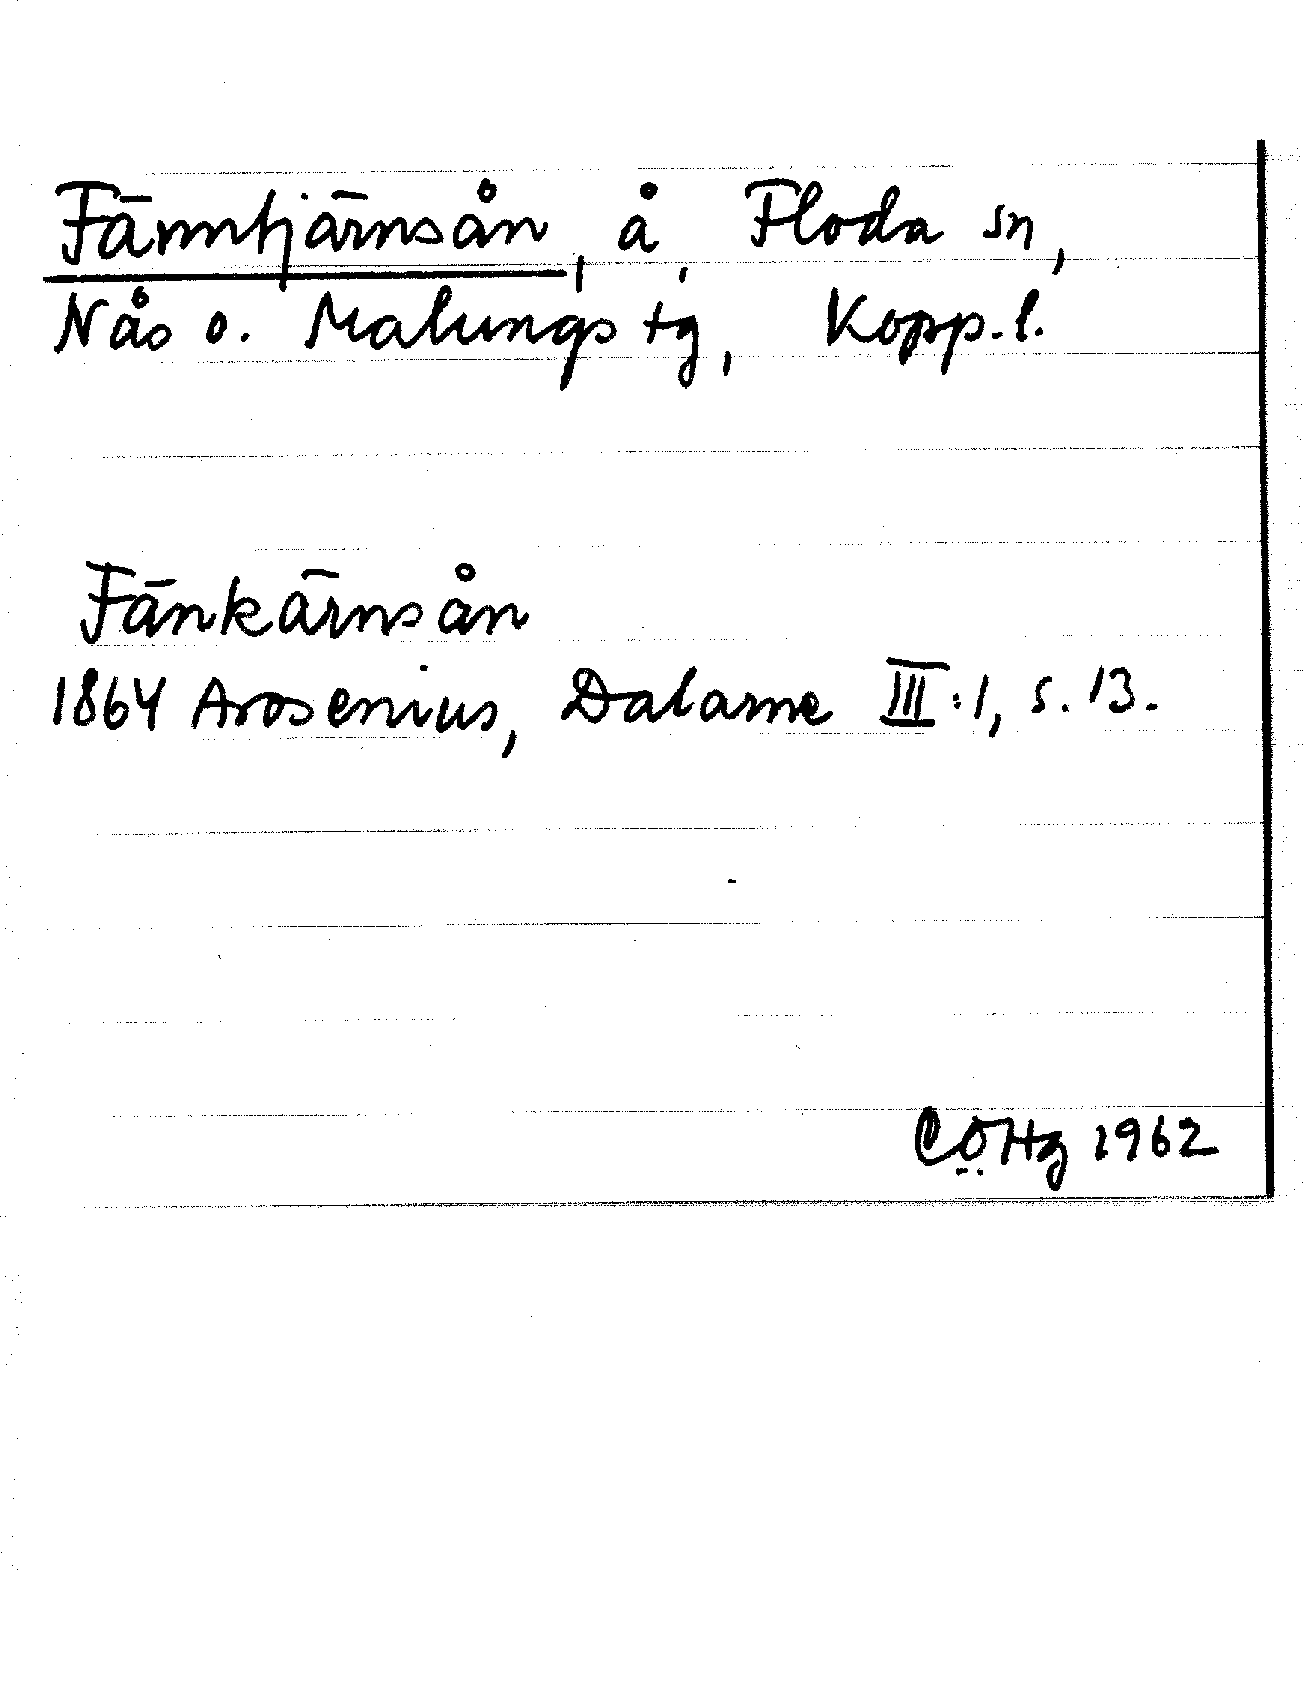 Fänntjärnsån, å, Floda sn,
Nås o. Malungs tg, Kopp.l.
Fänkärnsån
1864 Arosenius, Dalarne III:1, s. 13.
CÖHg 1962